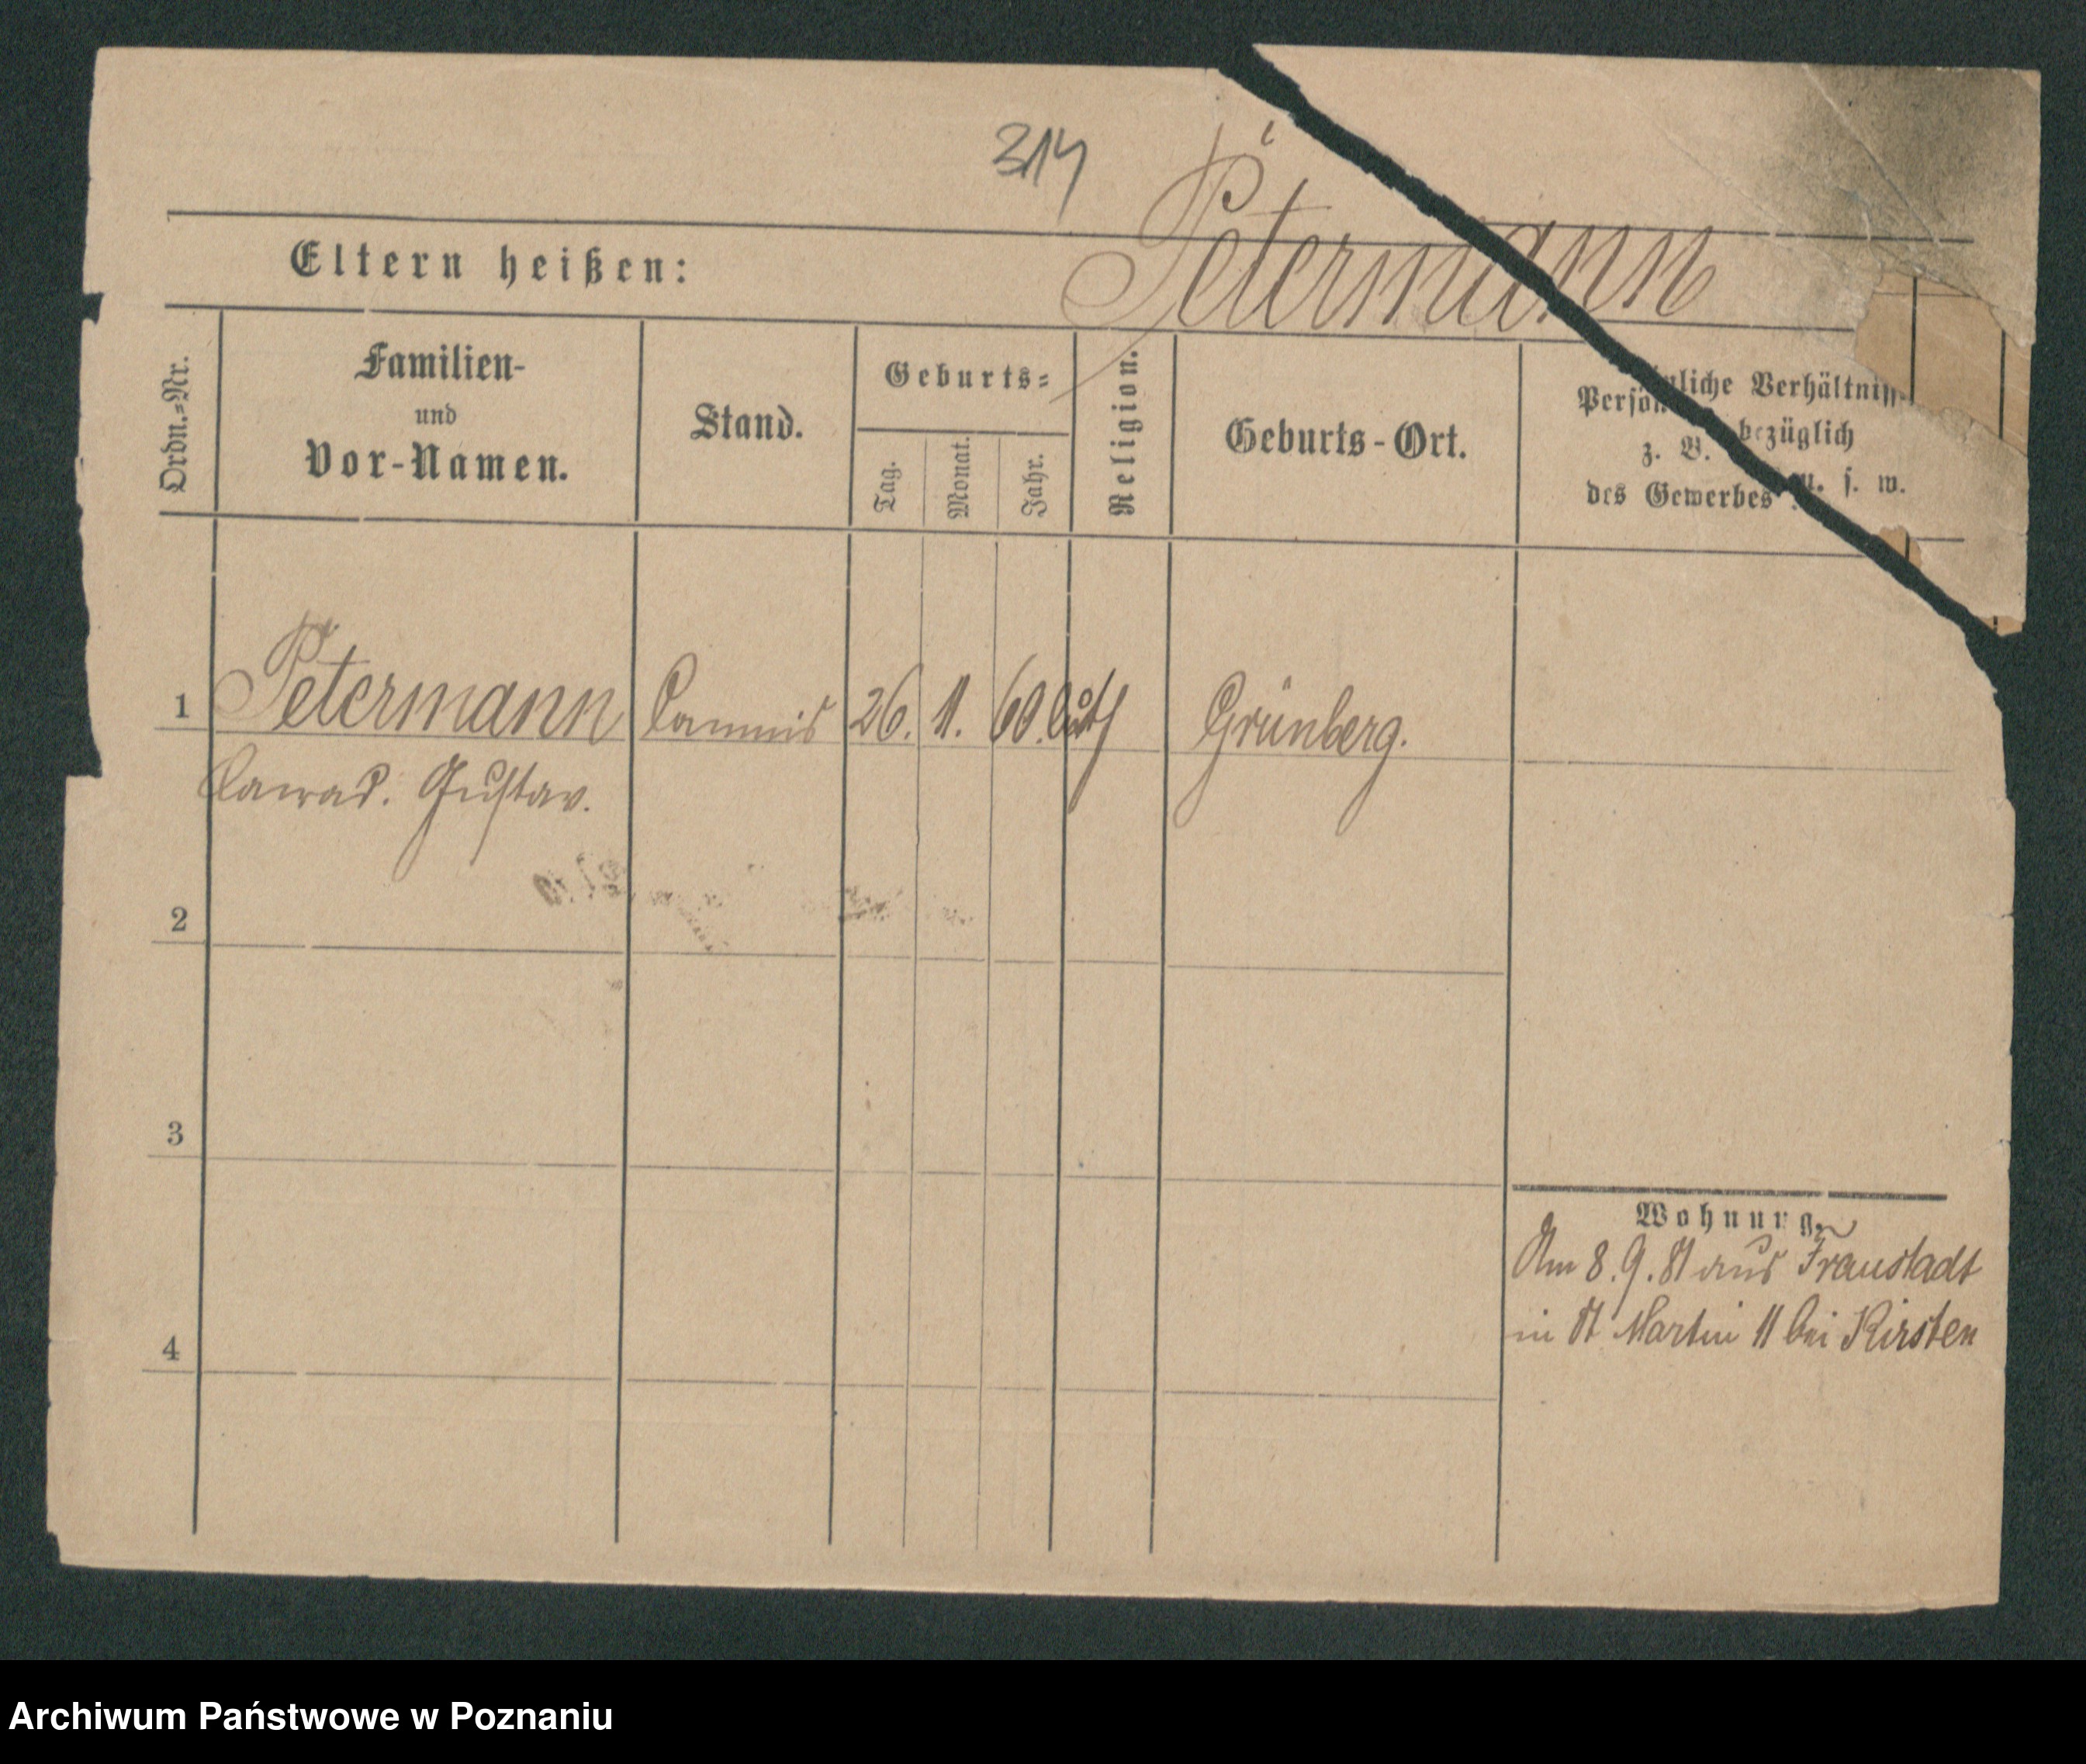 314
Petermann
Eltern heißen:
Ordn.=Nr.
Familien-
und
Vor-Namen.
Stand.
Geburts=
Tag.
Monat.
Jahr.
Religion.
Geburts-Ort.
Persönliche Verhältniss
z. B. bezüglich
des Gewerbes u. s. w.
1 Petermann Commis 26. 11. 60. luth Grünberg.
Conrad. Gustav.
2
3
4
Wohnung.
Am 8. 9. 81 aus Fraustadt
in St Martin 11 bei Kirsten
Archiwum Państwowe w Poznaniu